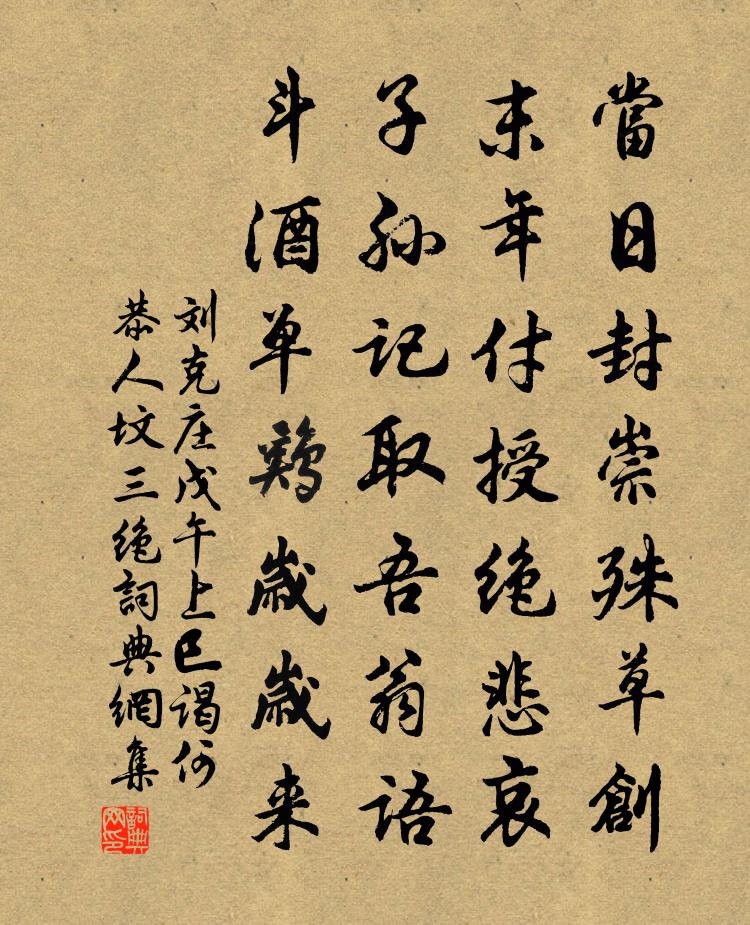 當日封崇殊草創
末年付授绝悲哀
子孙记取吾翁语
斗酒单鷄歳歳来
刘克庄戊午上巳谒何
恭人坟三绝詞典網集
詞典网印